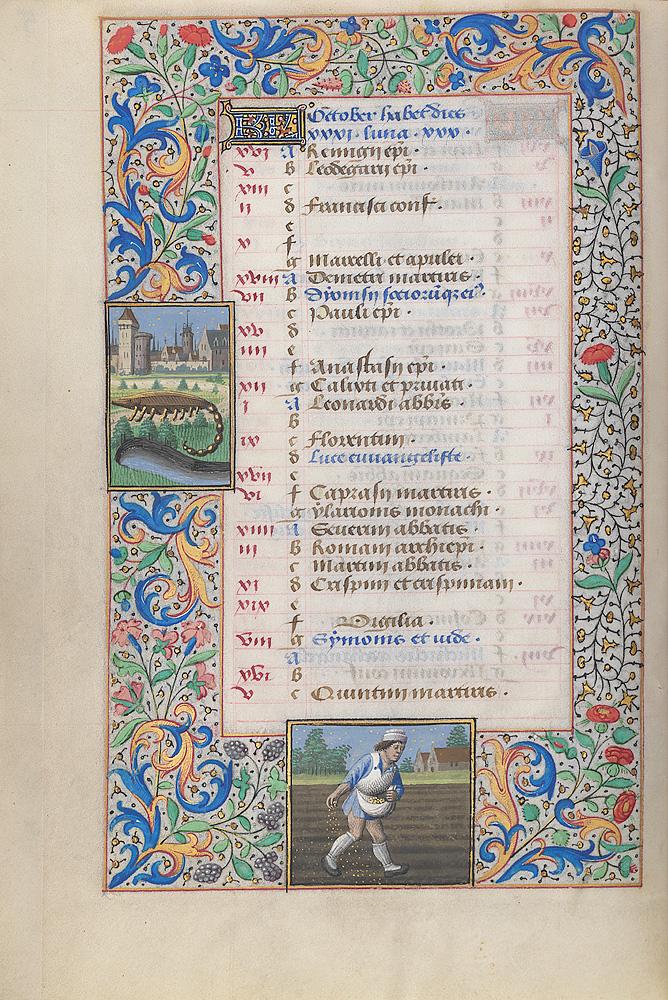 KL October habet dies
xxxi. luna. xxx.
xvi A Remigii epi.
v B Leodegarii epi.
xiii c
ii d Francisci conf.
e
x f
g Marcelli et apulei.
xviii A Demetri martiris.
vii B Dyonisii socior(um)q(ue) ei(us).
c Pauli epi.
xv d
iiii e
f Anastasii epi.
xii g Calixti et priuati.
i A Leonardi abbis.
B
ix c Florentini.
d Luce euuangeliste.
xvii e
vi f Caprasii martiris.
g ylarionis monachi.
xiiii A Seuerini abbatis.
iii B Romani archiepi.
c Martini abbatis.
xi d Crispini et crispiniani.
xix e
f Vigilia.
viii g Symonis et iude.
A
xvi B
v c Quintini martiris.